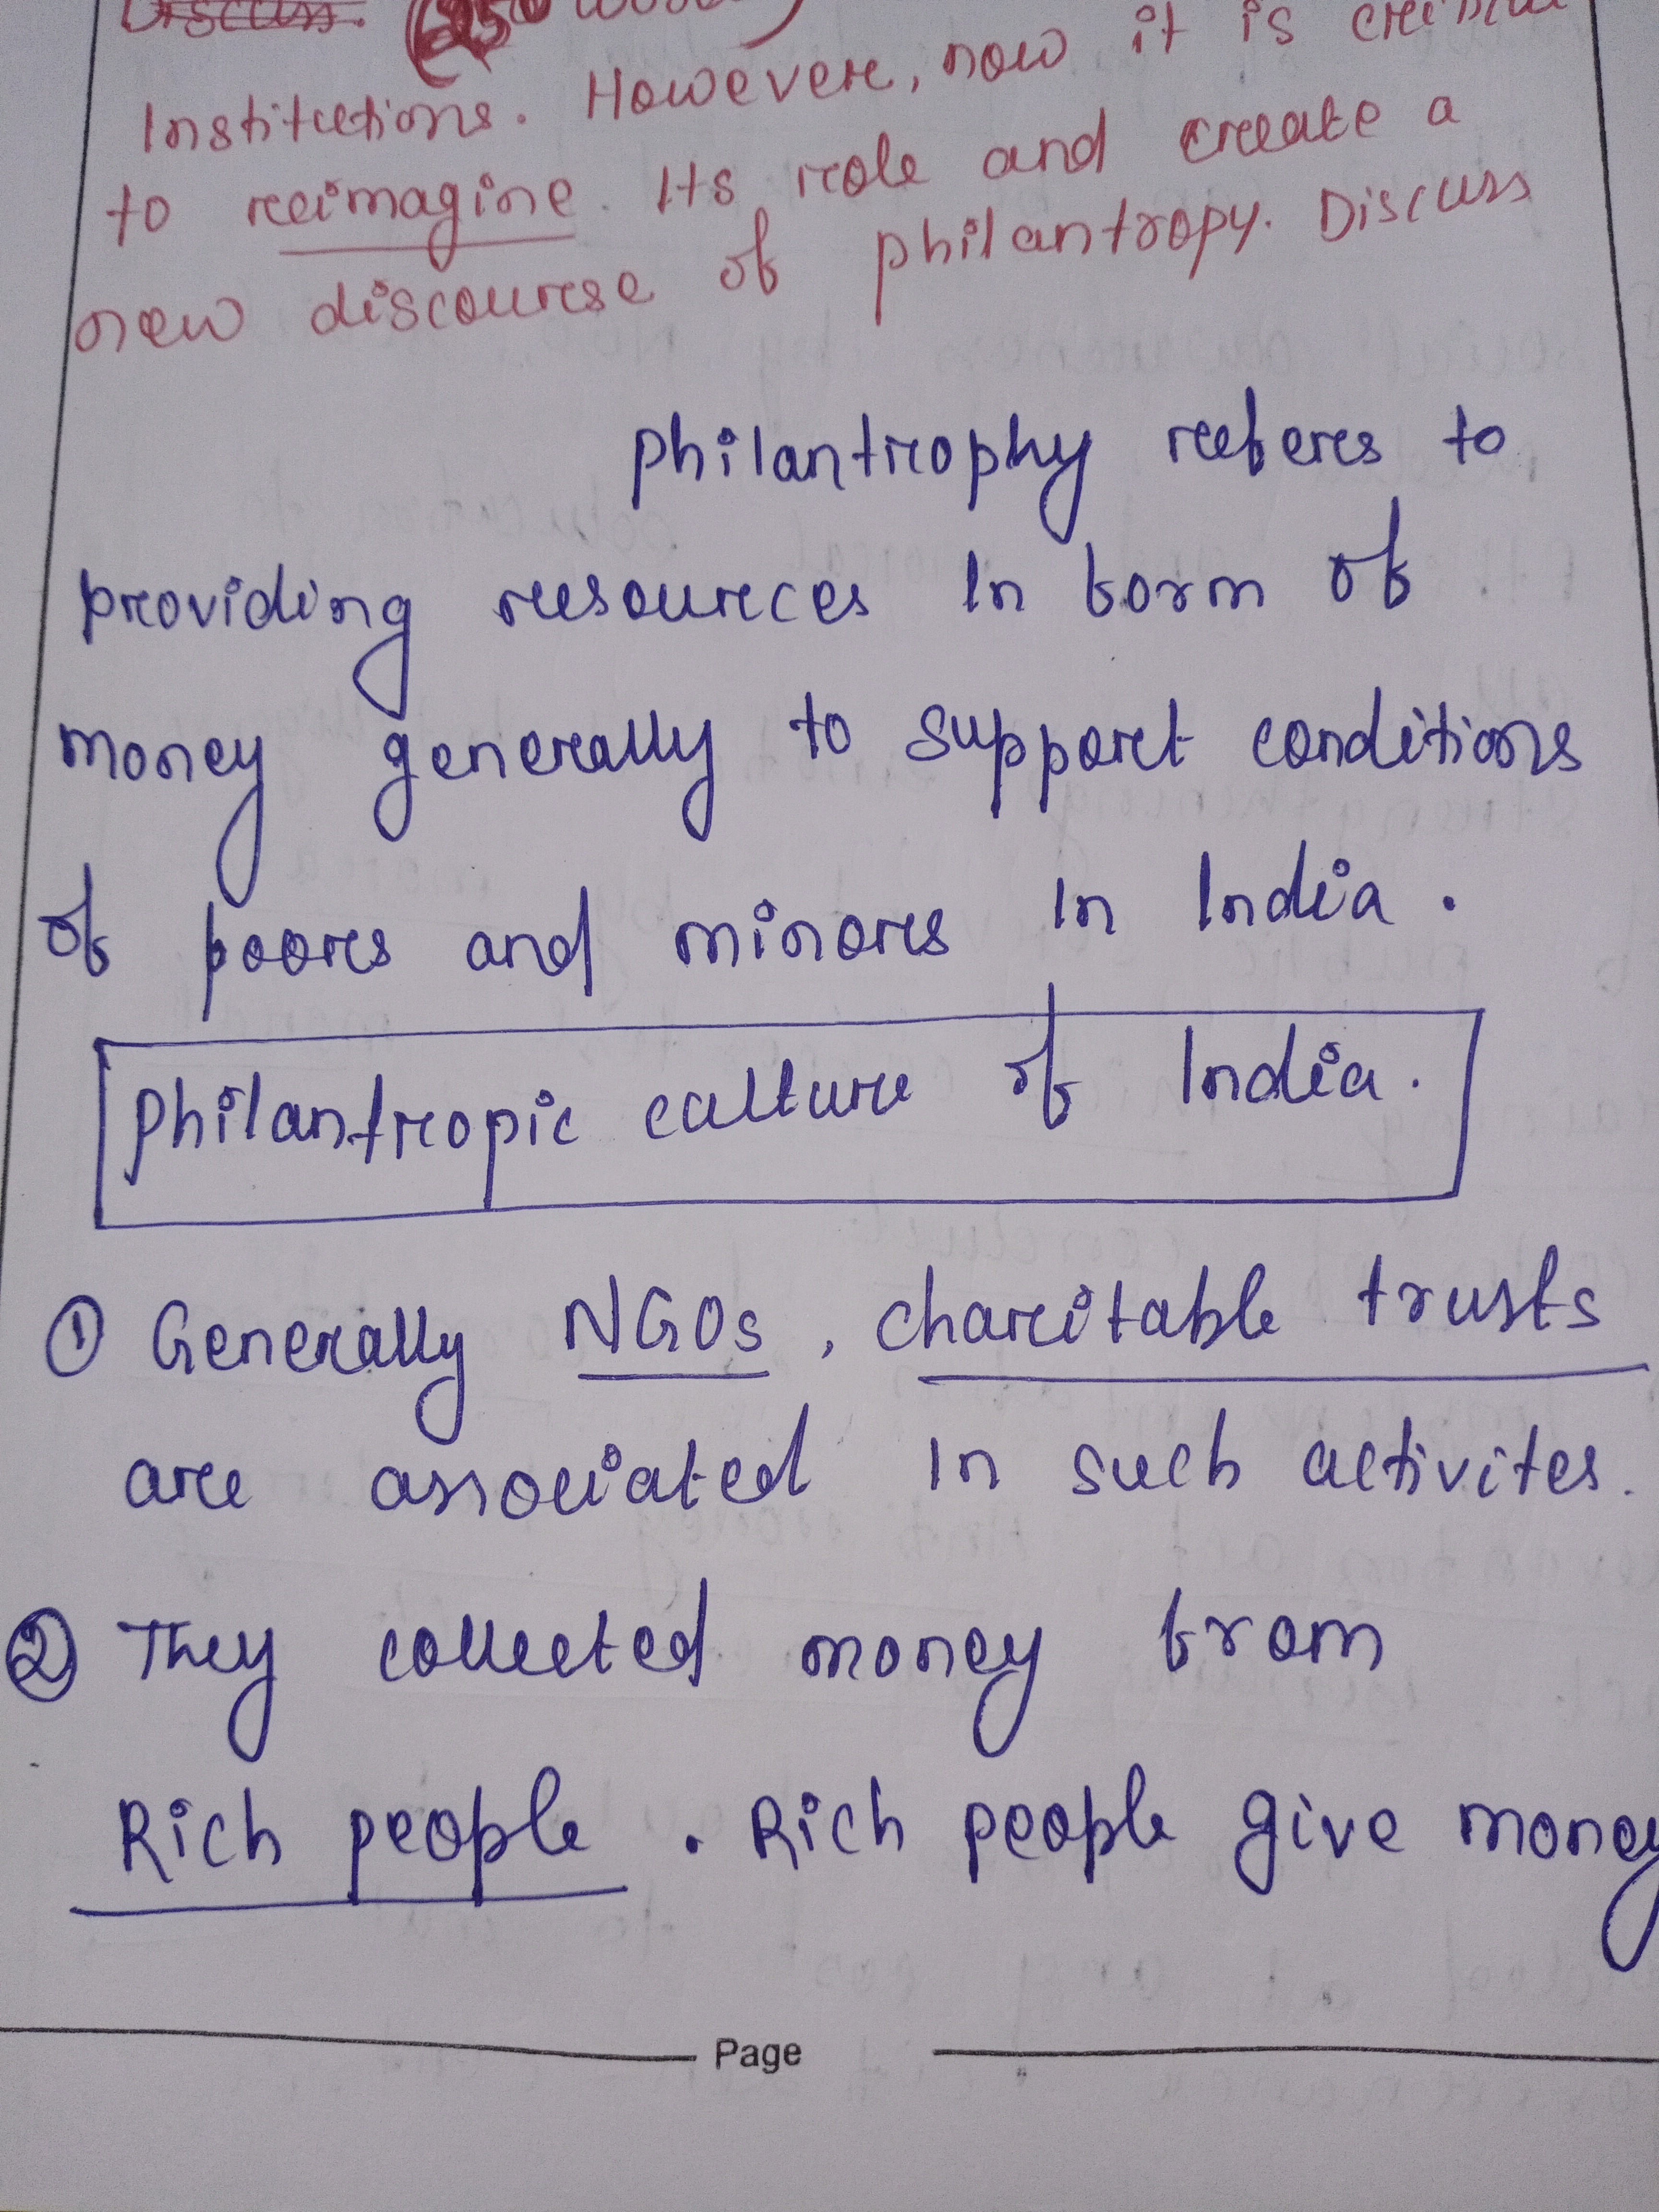 Discuss. (250 words)
Institutions. However, now it is critical
to reimagine. Its role and create a
new discourse of philantropy. Discuss
Philantrophy refers to
providing resources In form of
money generally to support conditions
of poors and minors In India.
Philantropic culture of India.
① Generally NGOs, charitable trusts
are associated In such activites.
② They collected money from
Rich people. Rich people give money
Page